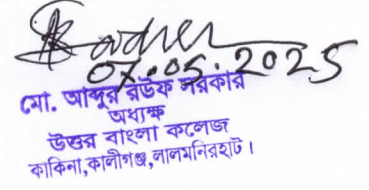 07.05.2025
মো. আব্দুর রউফ সরকার
অধ্যক্ষ
উত্তর বাংলা কলেজ
কাকিনা,কালীগঞ্জ,লালমনিরহাট।